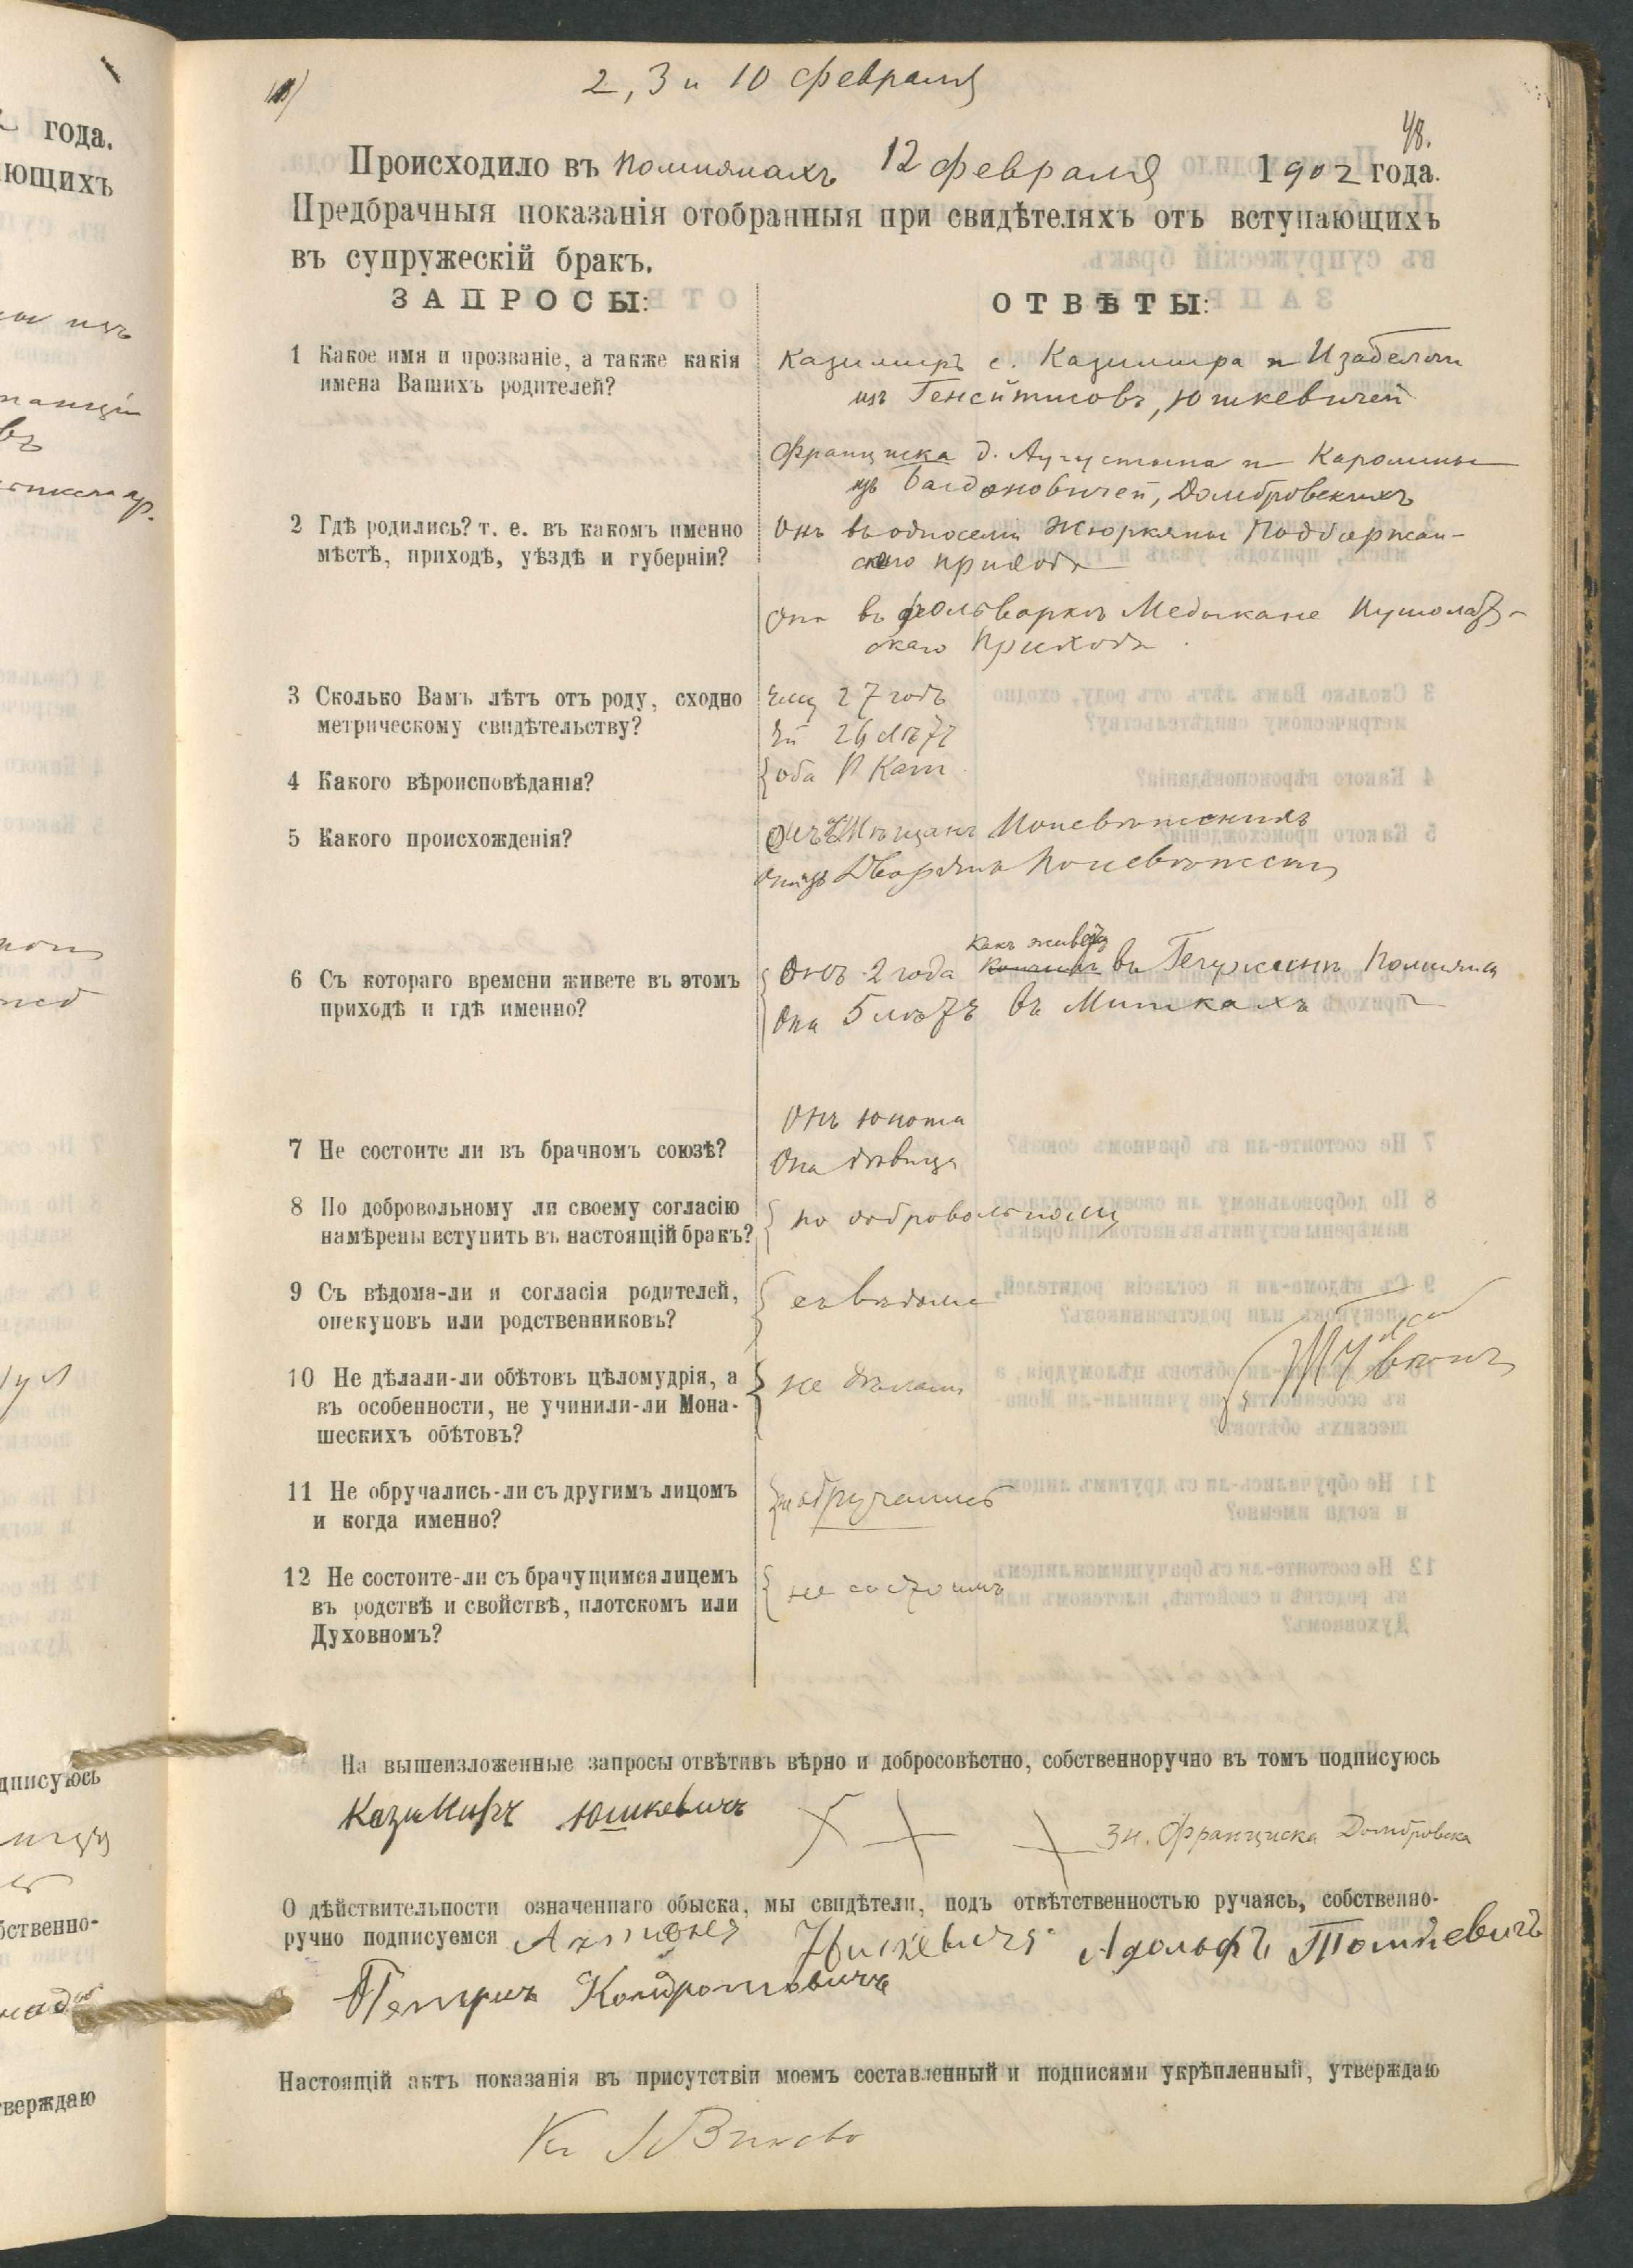 2, 3 и 10 февраля
48.
Происходило въ Помпянахъ 12 февраля 1902 года.
Предбрачныя показанія отобранныя при свидѣтеляхъ отъ вступающихъ
въ супружескій бракъ.
ЗАПРОСЫ:
ОТВѢТЫ:
1 Какое имя и прозваніе, а также какія
имена Вашихъ родителей?
Казимиръ с. Казимира и Изабеллы
изъ, Юшкевичей
Франциска д. Аугустына и Каролины
изъ Багдоновичей, Домбровскихъ
2 Гдѣ родились? т. е. въ какомъ именно
мѣстѣ, приходѣ, уѣздѣ и губерніи?
Онъ въ односели Жюркяны Поддбержан-
скаго прихода
Она въ фольваркѣ Медыкане Пушолат-
скаго прихода
3 Сколько Вамъ лѣтъ отъ роду, сходно
метрическому свидѣтельству?
Ему 27 годъ
Ей 26 лѣтъ
4 Какого вѣроисповѣданія?
оба Р Кат
5 Какого происхожденія?
Онъ изъ Мѣщанъ Поневѣжскихъ
она изъ Дворянъ Поневѣжски
6 Съ котораго времени живете въ этомъ
приходѣ и гдѣ именно?
какъ живетъ
Онъ 2 года въ Помпяны
Она 5 лѣтъ въ Мишкахъ
7 Не состоите ли въ брачномъ союзѣ?
Онъ юноша
Она дѣвица
8 По добровольному ли своему согласію
намѣрены вступить въ настоящій бракъ?
по добровольному
9 Съ вѣдома-ли и согласія родителей,
опекуновъ или родственниковъ?
съ вѣдома
10 Не дѣлали-ли обѣтовъ цѣломудрія, а
въ особенности, не учинили-ли Мона-
шескихъ обѣтовъ?
не дѣлали
11 Не обручались-ли съ другимъ лицомъ
и когда именно?
не обручались
12 Не состоите-ли съ брачущимся лицемъ
въ родствѣ и свойствѣ, плотскомъ или
Духовномъ?
не состоимъ
На вышеизложенные запросы отвѣтивъ вѣрно и добросовѣстно, собственноручно въ томъ подписуюсь
Казимиръ Юшкевичъ
Зн. Франциска Домбровска
О дѣйствительности означеннаго обыска, мы свидѣтели, подъ отвѣтственностью ручаясь, собственно-
ручно подписуемся Адольфъ Тошкевичъ
Петръ Кондротовичъ
Настоящій актъ показанія въ присутствіи моемъ составленный и подписями укрѣпленный, утверждаю